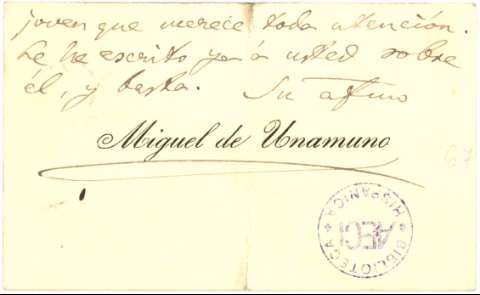 joven que merece toda atención.
Le he escrito ya á usted sobre
él, y basta. Su afmo
Miguel de Unamuno
67
BIBLIOTECA
HISPANICA
AECI